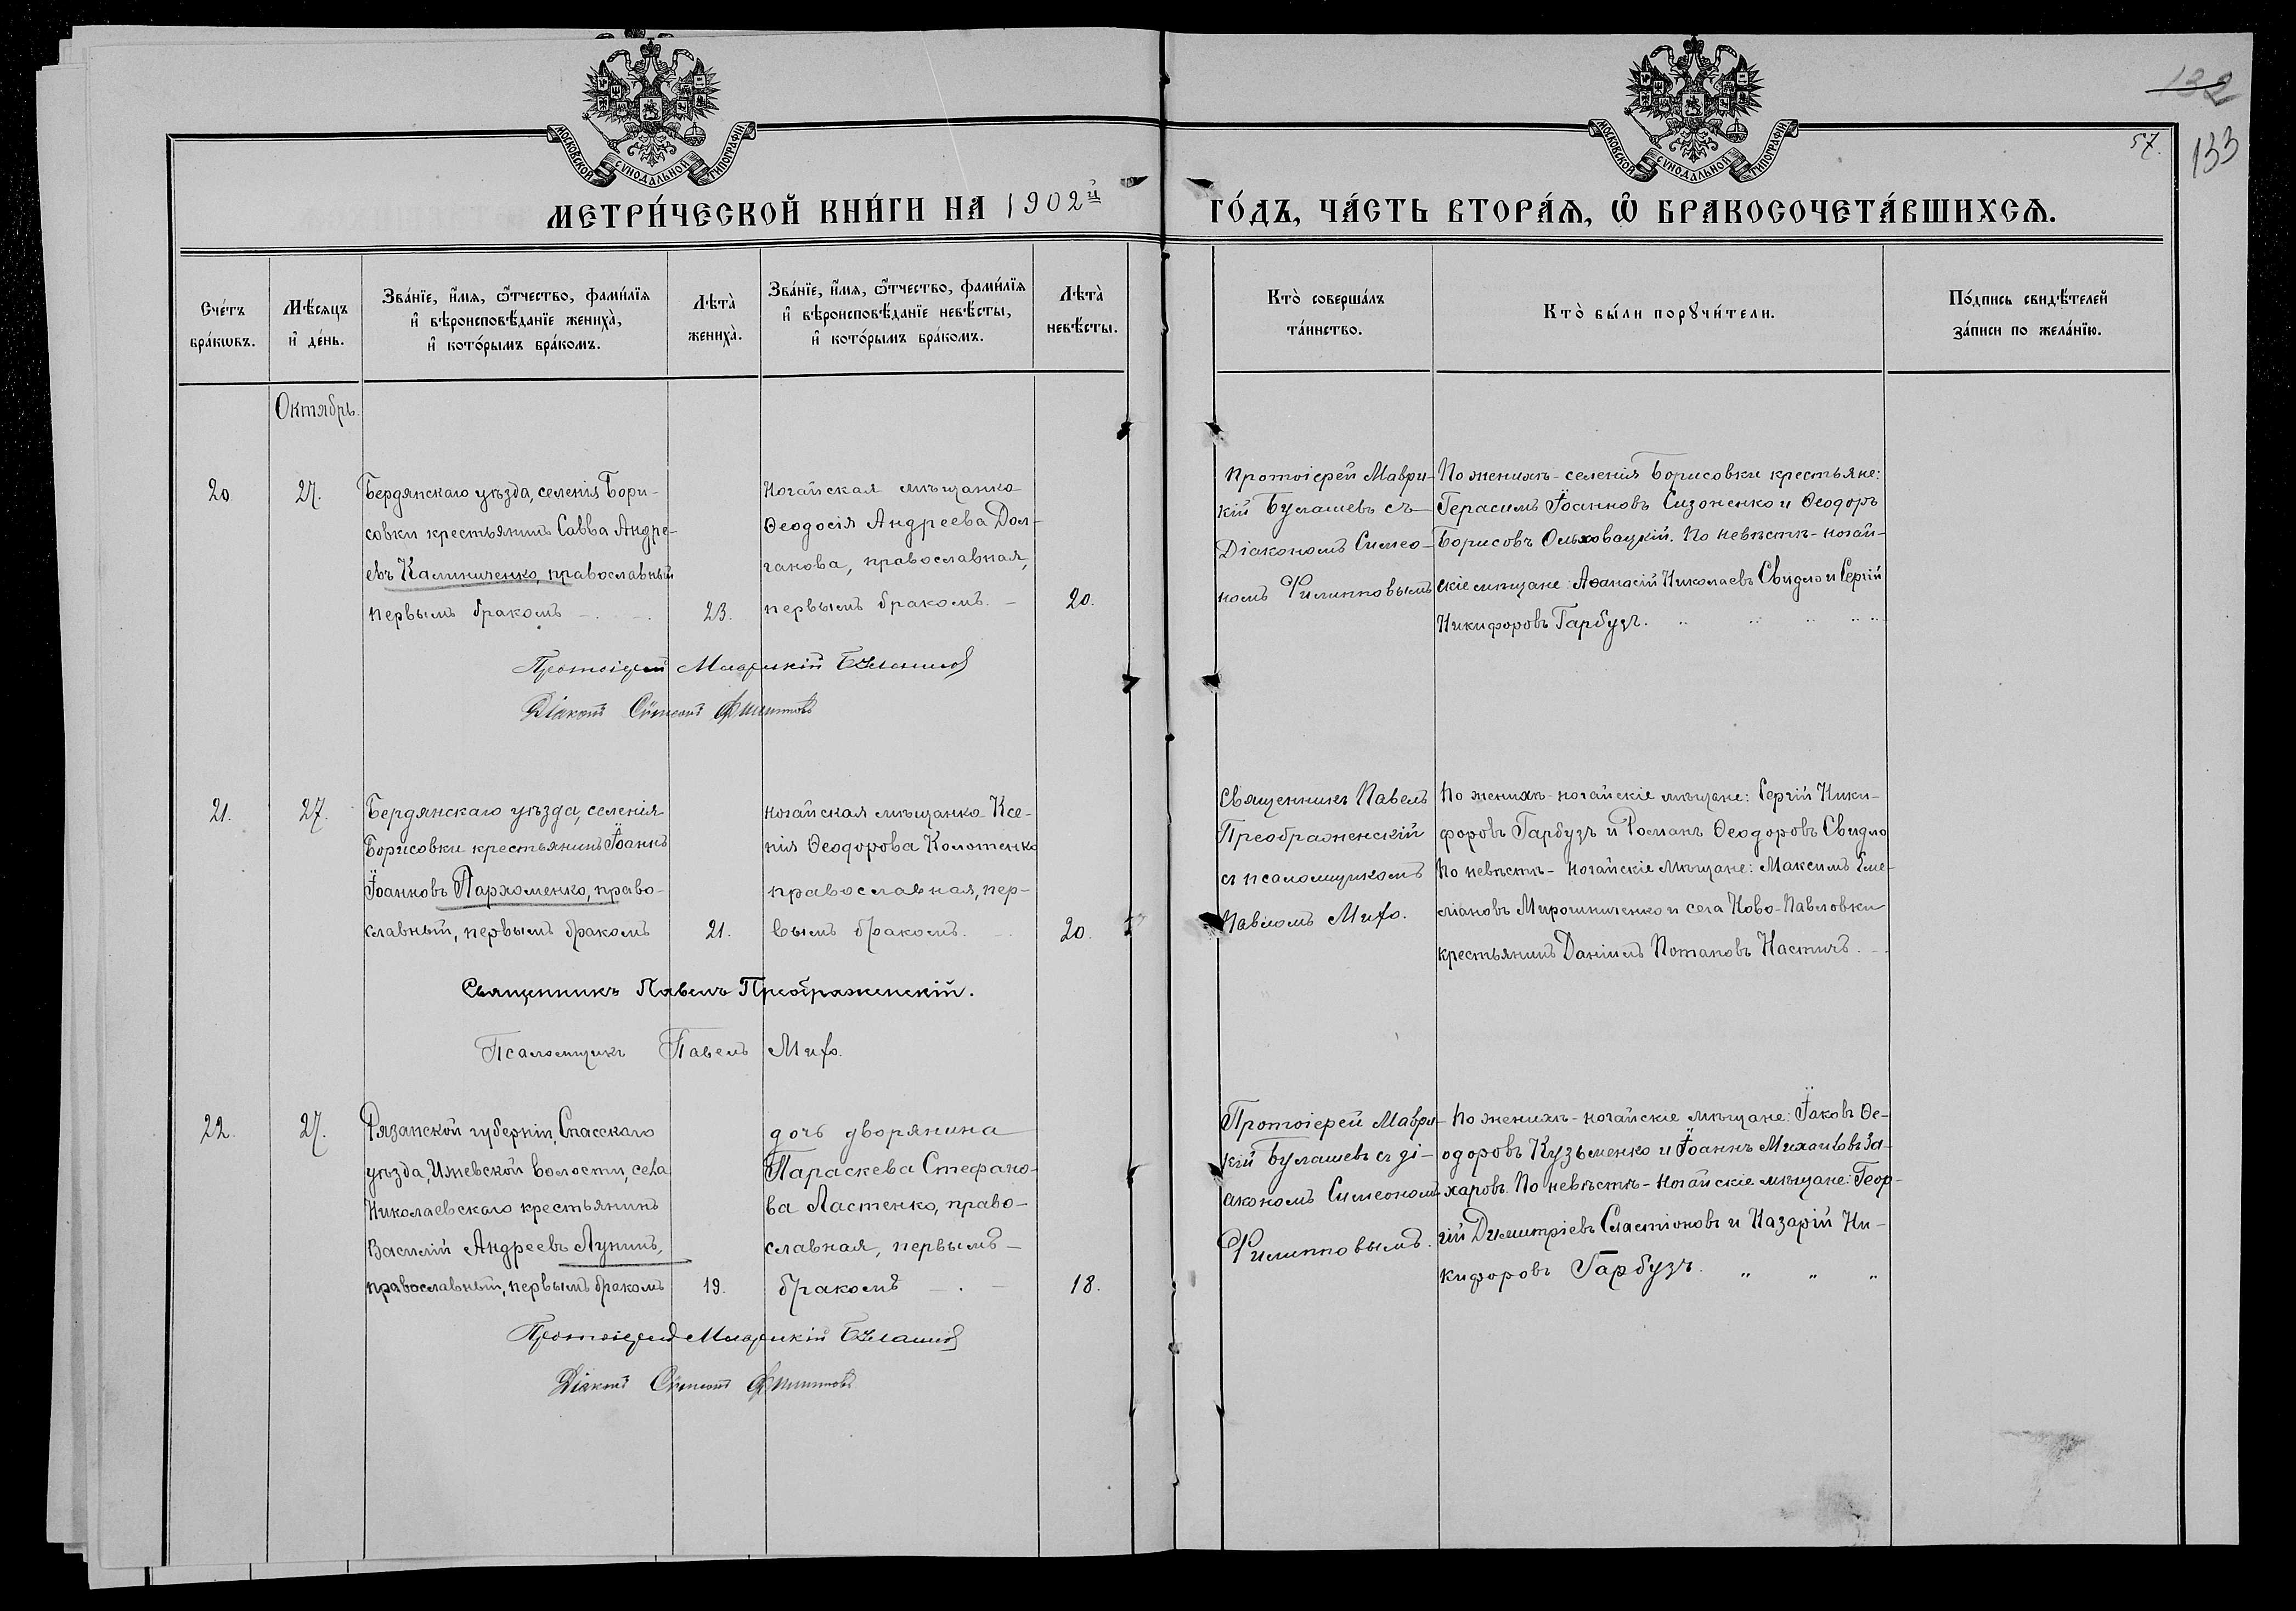 132
133
57.
МОСКОВСКОЙ СѴНОДАЛЬНОЙ ТИПОГРАФІИ
МОСКОВСКОЙ СѴНОДАЛЬНОЙ ТИПОГРАФІИ
МЕТРИ́ЧЕСКОЙ КНИ́ГИ НА 1902й ГО́ДЪ, ЧА́СТЬ ВТОРА́Ѧ, Ѽ БРАКОСОЧЕТА́ВШИХСѦ.
Сче́тъ
бра́кѡвъ.
Мѣ́сѧцъ
и҆ де́нь.
Зва́нїе, и҆́мѧ, ѻ҆́тчество, фами́лїѧ
и҆ вѣроисповѣ́данїе жениха̀,
и҆ кото́рымъ бра́комъ.
Лѣта̀
жениха̀.
Зва́нїе, и҆́мѧ, ѻ҆́тчество, фами́лїѧ
и҆ вѣроисповѣ́данїе невѣ́сты,
и҆ кото́рымъ бра́комъ.
Лѣта̀
невѣ́сты.
Кто̀ соверша́лъ
та́инство.
Кто̀ бы́ли порꙋчи́тели.
По́дпись свидѣ́телей
за́писи по жела́нїю.
Октябрь.
20
27.
Бердянскаго уѣзда, селенія Бори-
совки крестьянинъ Савва Андре-
евъ Калиниченко, православный
первымъ бракомъ
23.
Ногайская мѣщанка
Ѳеодосія Андреева Дол-
ганова, православная,
первымъ бракомъ. –
20.
Протоіерей Маври-
кій Булашевъ съ
Діакономъ Симео-
номъ Филипповымъ
По женихѣ - селенія Борисовки крестьяне:
Герасимъ Іоанновъ Сизоненко и Ѳеодоръ
Борисовъ Ольховацкій. По невѣстѣ - ногай-
скіе мѣщане: Аѳанасій Николаевъ Свидло и Сергій
Никифоровъ Гарбузъ.
Протоіерей Маврикій Булашевъ
Діаконъ Симеонъ Филипповъ
21.
27.
Бердянскаго уѣзда, селенія
Борисовки крестьянинъ Іоаннъ
Іоанновъ Пархоменко, право-
славный, первымъ бракомъ
21.
Ногайская мѣщанка Ксе-
нія Ѳеодорова Колотенко
православная, пер-
вымъ бракомъ.
20.
Священникъ Павелъ
Преображенскій
съ псаломщикомъ
Павломъ Миѳо.
По женихѣ - ногайскіе мѣщане: Сергій Ники-
форовъ Гарбузъ и Романъ Ѳеодоровъ Свидло
По невѣстѣ - ногайскіе мѣщане: Максимъ Еме-
ліановъ Мирошниченко и села Ново-Павловки
крестьянинъ Даніилъ Потаповъ Настичъ.
Священникъ Павелъ Преображенскій.
Псаломщикъ Павелъ Миѳо.
22.
27.
Рязанской губерніи, Спасскаго
уѣзда, Ижевской волости, села
Николаевскаго крестьянинъ
Василій Андреевъ Лунинъ,
православный, первымъ бракомъ
19.
дочь дворянина
Параскева Стефано-
ва Ластенко, право-
славная, первымъ
бракомъ
18.
Протоіерей Маври-
кій Булашевъ съ ді-
акономъ Симеономъ
Филипповымъ.
По женихѣ - ногайскіе мѣщане: Іаковъ Ѳе-
одоровъ Кузьменко и Іоаннъ Михаиловъ За-
харовъ. По невѣстѣ - ногайскіе мѣщане: Геор-
гій Димитріевъ Сластіоновъ и Назарій Ни-
кифоровъ Гарбузъ. „ „ „
Протоіерей Маврикій Булашевъ
Діаконъ Симеонъ Филипповъ